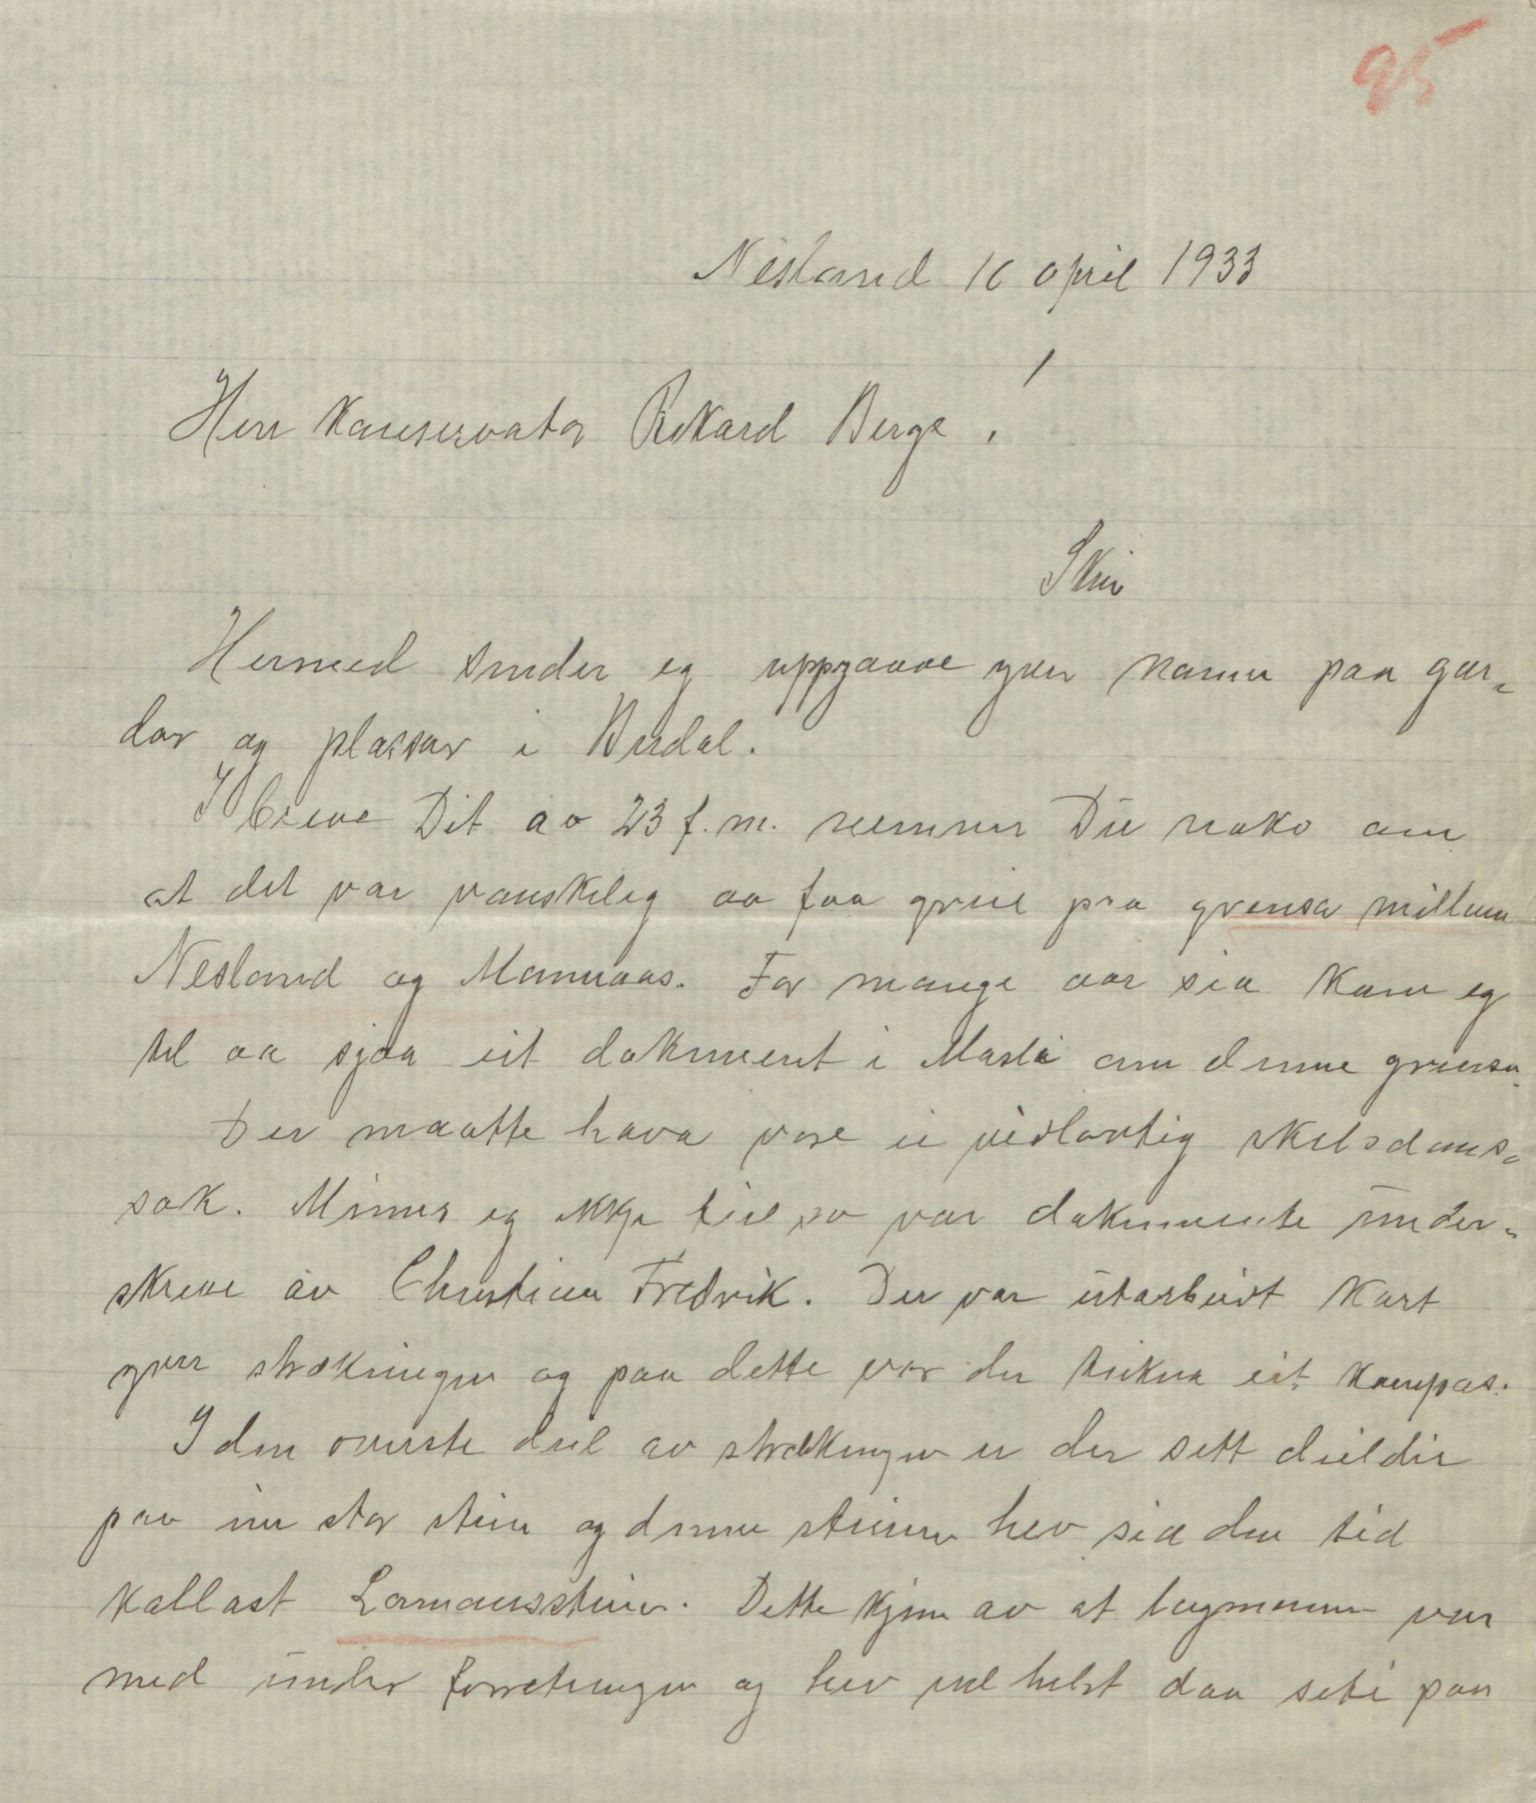 95
Nesland 16 april 1933
Herr Konservator Rikard Berge,
Skien
Hermed sender eg uppgaave yver namn paa gar-
dar og plassar i Bødal.
I breve Dit av 23 f.m. nemner Du noko om
at det var vanskeleg aa faa greie paa grensa millom
Nesland og Mannaas. For mange aar sia kom eg
til aa sjaa eit dokument i Maslå om denne grensa.
Der maatte hava vore ei vidløvtig skilsdoms-
sak. Minnes eg ikkje feil so var dokumente under-
skreve av Christian Fredrik. Der var utarbeidt kart
yver strækningen og paa dette var der teikna eit kompas.
I den øverste deel av strækningen er der sett deildir
paa ein stor stein og denne steinen hev sia den tid
kallast Lamansstein. Dette kjem av at lagmannen var
med under forretningen og hev vel helst daa sete paa